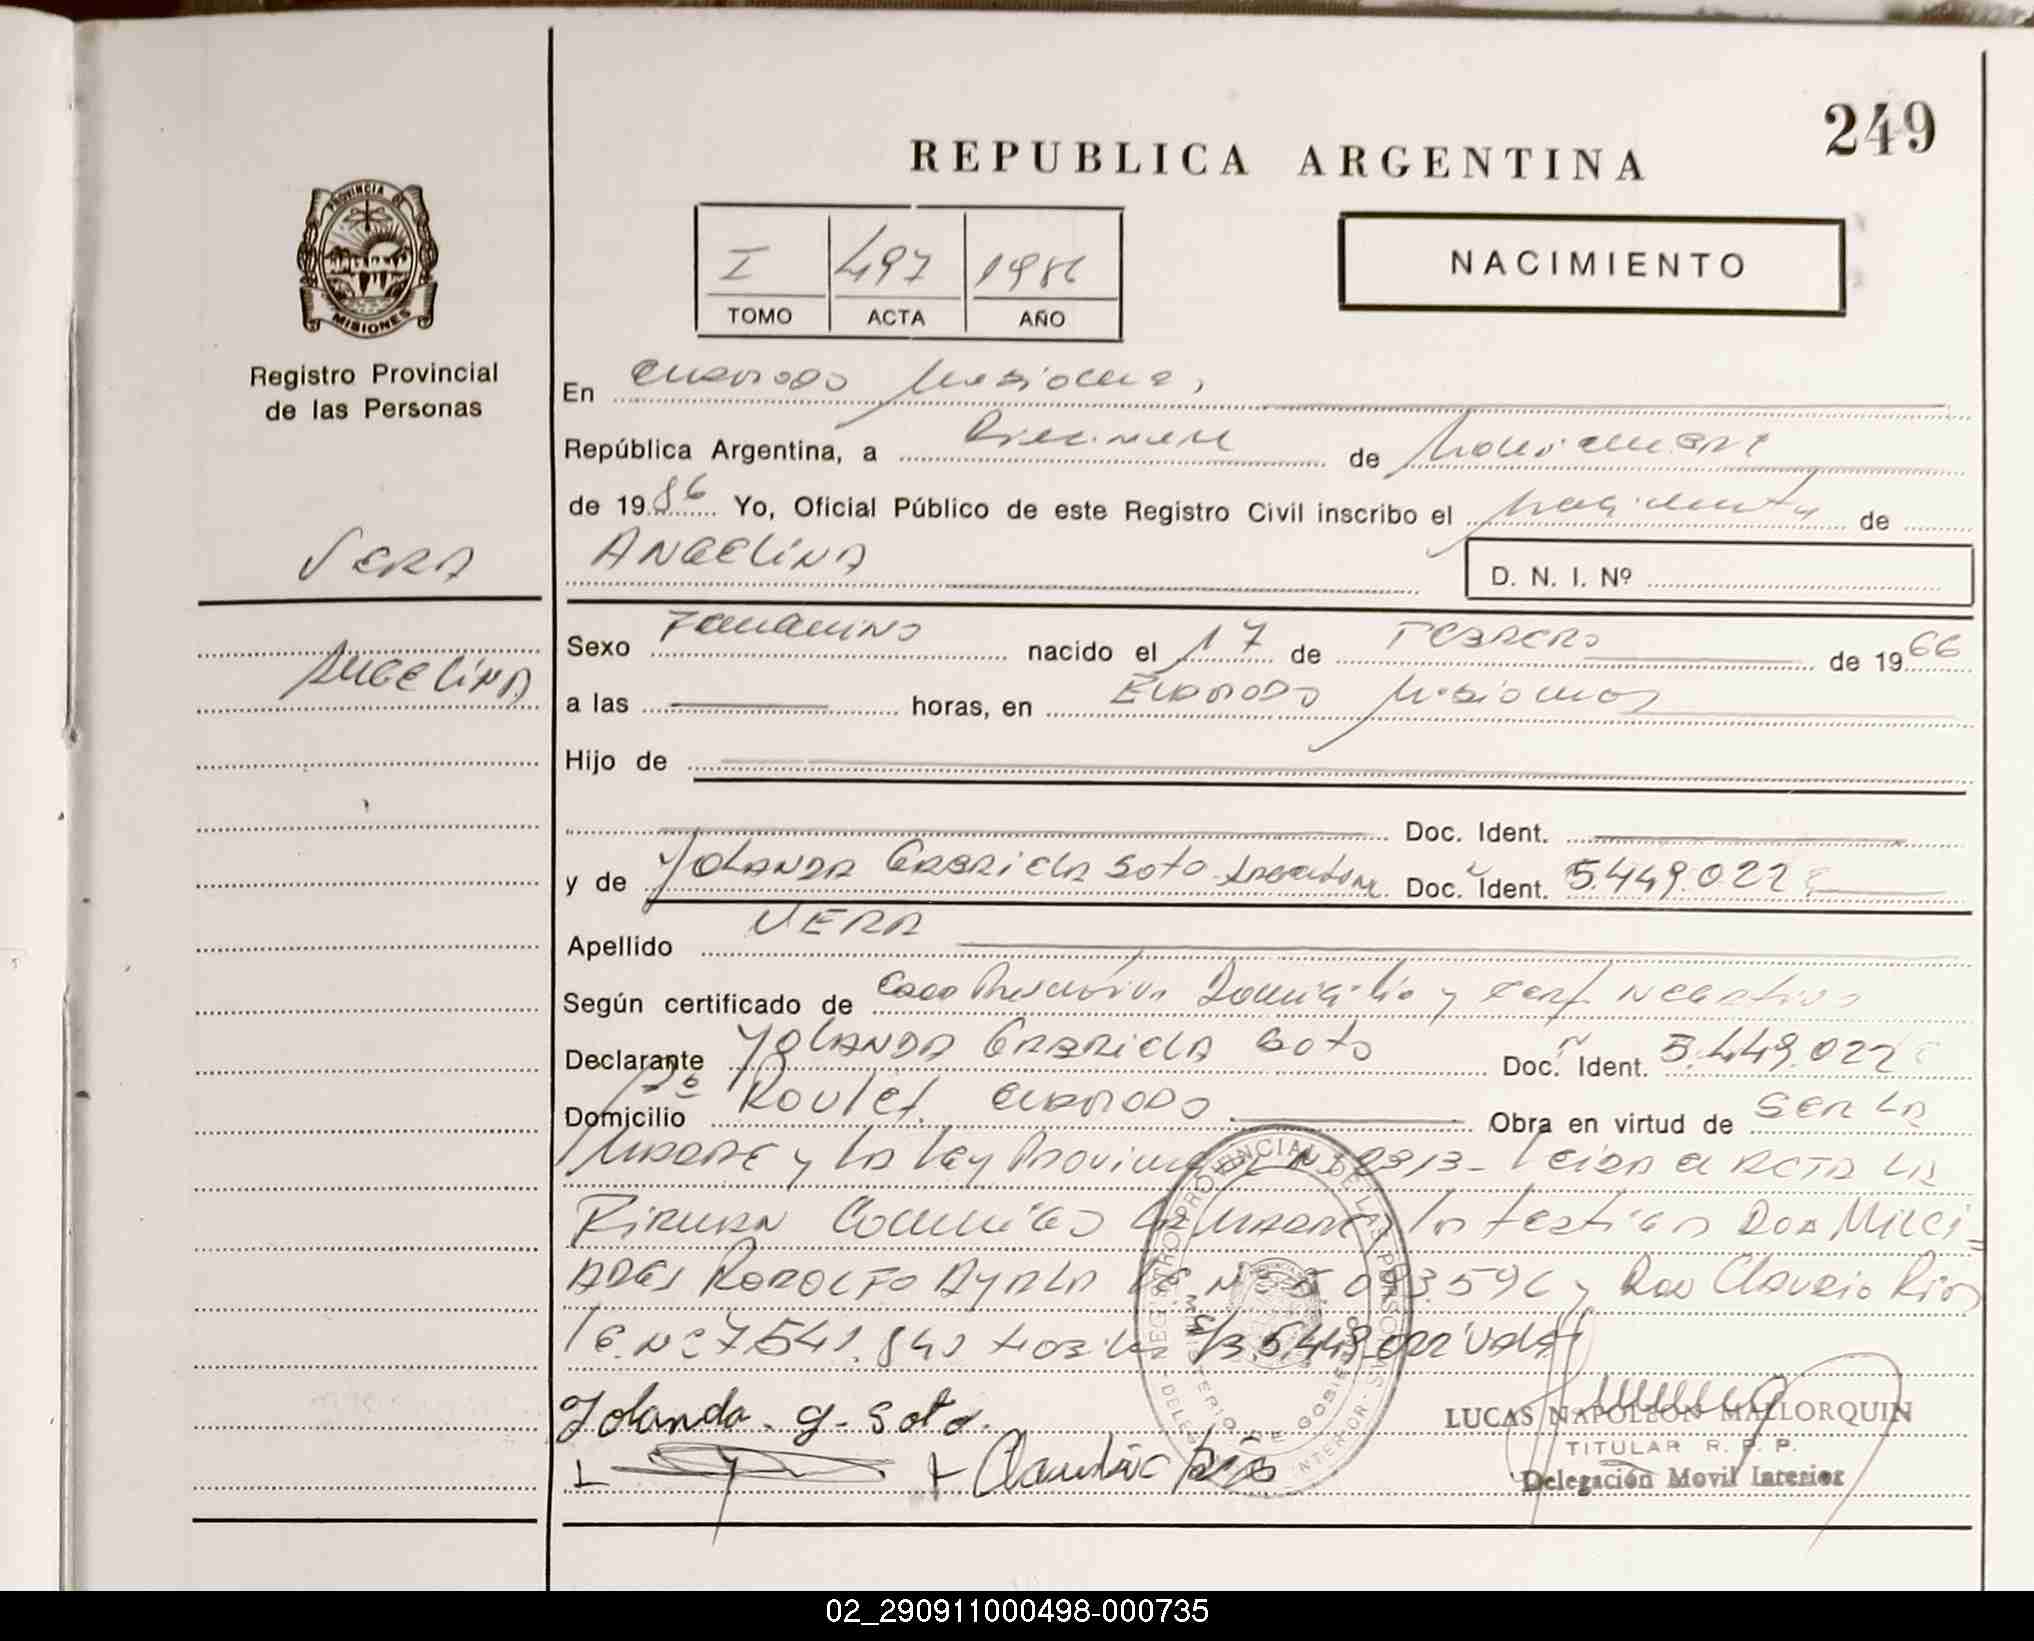 249
REPUBLICA ARGENTINA
PROVINCIA DE
MISIONES
Registro Provincial
de las Personas
I 497 1986
TOMO ACTA AÑO
NACIMIENTO
En Eldorado Misiones,
República Argentina, a Diecinueve de
de 1986 Yo, Oficial Público de este Registro Civil inscribo el nacimiento de
VERA
ANGELINA
D. N. I. Nº
ANGELINA
Sexo Femenino nacido el 17 de FEBRERO de 1966
a las horas, en Eldorado Misiones
Hijo de
Doc. Ident.
y de YOLANDA GABRIELA SOTO Doc. Ident. 5.449.022
Apellido VERA
Según certificado de Domicilio y cert negativo
Declarante YOLANDA GABRIELA SOTO Doc. Ident. 5.449.022
Domicilio Roulet. Eldorado Obra en virtud de SER LA
MADRE y LA Ley Provincial Nº - Leida el ACTA LA
FIRMAN Conmigo LA MADRE y los testigos Don MILCI=
ADES RODOLFO AYALA y Don Claudio Rios
Vale
Yolanda. G. Soto.
Claudio Rios
REGISTRO PROVINCIAL DE LAS PERSONAS
MINISTERIO DE GOBIERNO
LUCAS NAPOLEON MALLORQUIN
TITULAR R. P. P.
Delegación Movil Interior
02_290911000498-000735